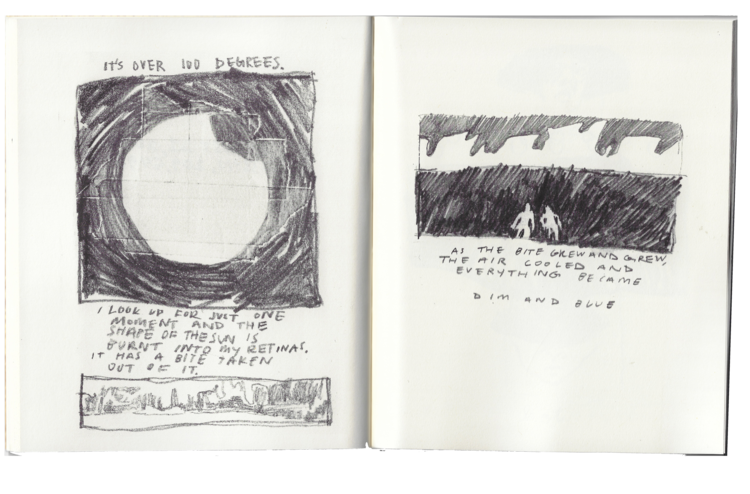 IT'S OVER 100 DEGREES.
I LOOK UP FOR JUST ONE
MOMENT AND THE
SHAPE OF THE SUN IS
BURNT INTO MY RETINAS.
IT HAS A BITE TAKEN
OUT OF IT.
AS THE BITE GREW AND GREW,
THE AIR COOLED AND
EVERYTHING BECAME
DIM AND BLUE